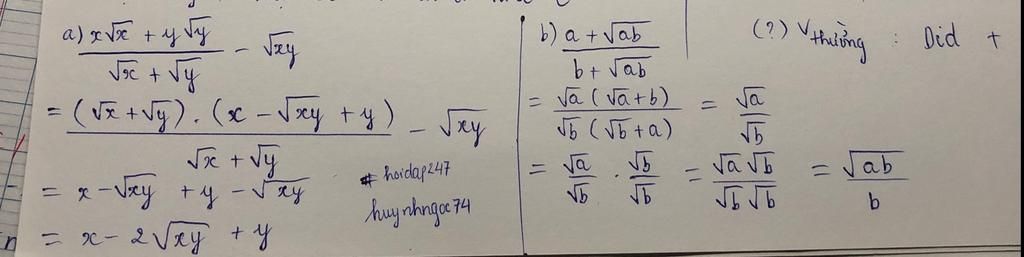 a) x√x + y√y / √x + √y - √xy
= (√x + √y) . (x - √xy + y) / √x + √y - √xy
= x - √xy + y - √xy
= x - 2√xy + y
# hoidap247
huynhngoc74
b) a + √ab / b + √ab
= √a (√a + b) / √b (√b + a) = √a / √b
= √a / √b . √b / √b = √a √b / √b √b = √ab / b
(?) Vthường : Did +